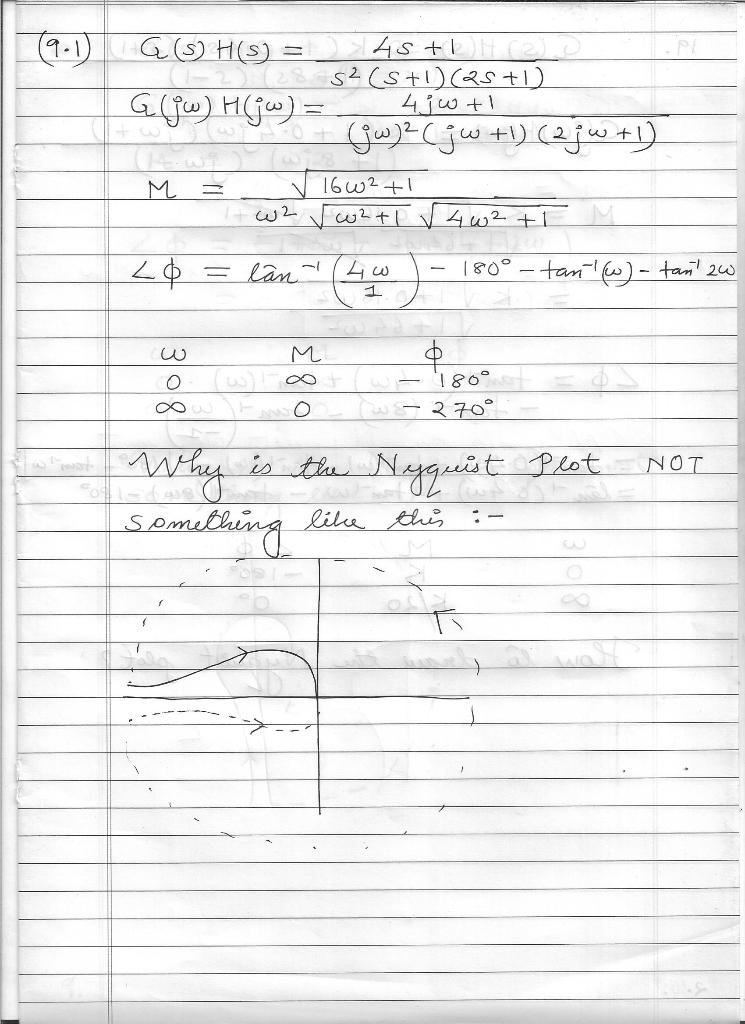 (9.1) G(s) H(s) = 4s + 1 / s² (s+1) (2s+1)
G(jω) H(jω) = 4jω + 1 / (jω)² (jω + 1) (2jω + 1)
M = √16ω² + 1 / ω² √ω² + 1 √4ω² + 1
∠ϕ = tan⁻¹ (4ω / 1) − 180° − tan⁻¹(ω) − tan⁻¹ 2ω
ω M ϕ
0 ∞ − 180°
∞ 0 − 270°
Why is the Nyquist Plot NOT
something like this :-